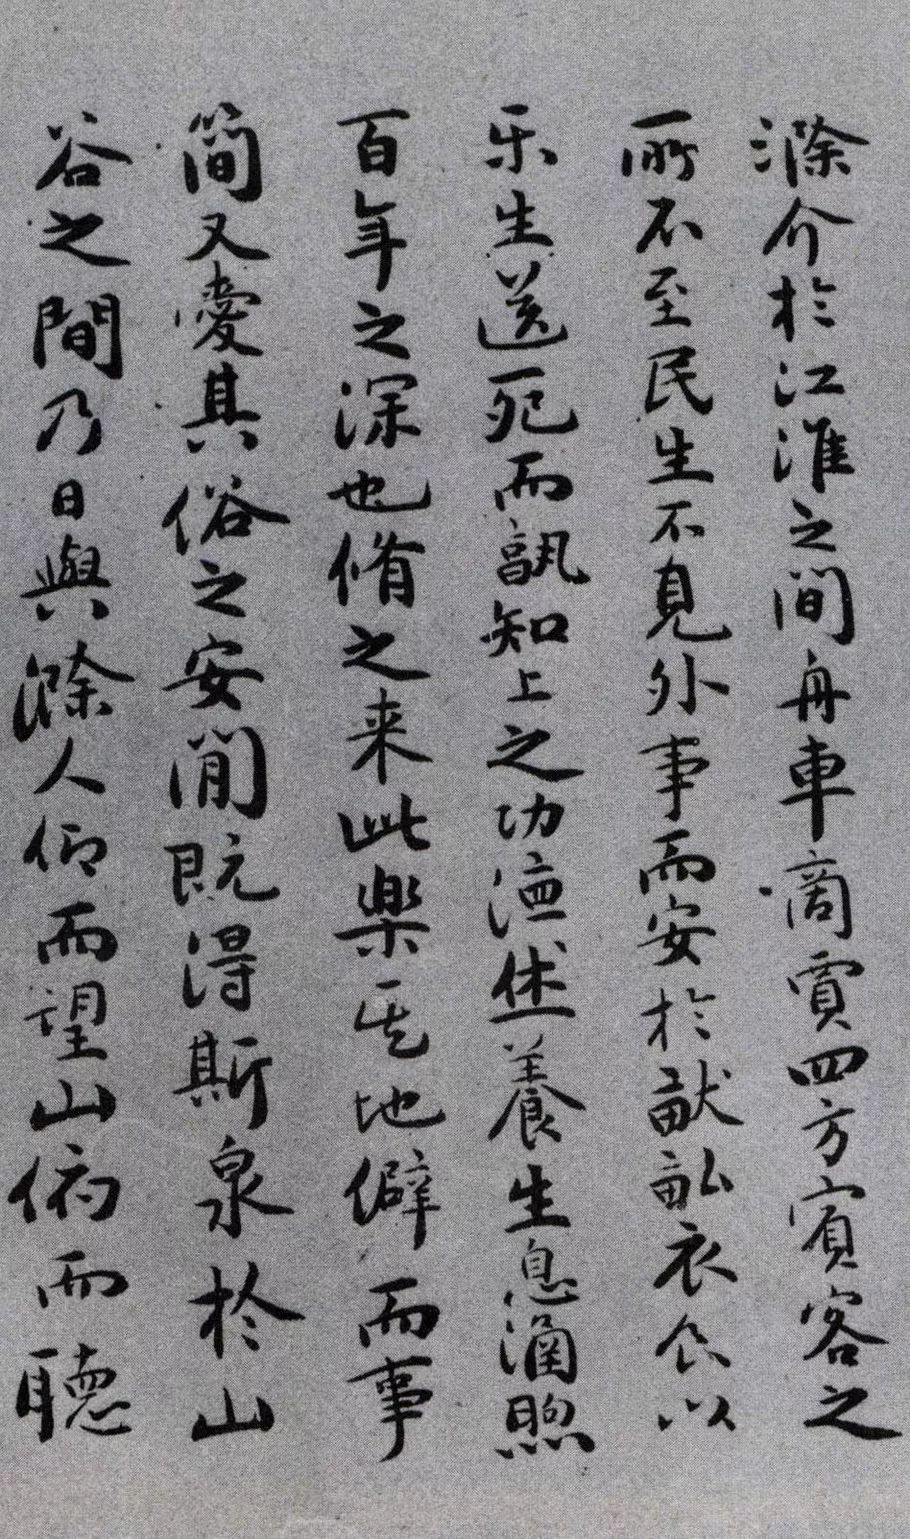 滁介於江淮之間舟車商賈四方賓客之
所不至民生不見外事而安於畎畝衣食以
乐生送死而孰知上之功德休養生息涵煦
百年之深也脩之来此樂其地僻而事
簡又愛其俗之安閒既得斯泉於山
谷之間乃日與滁人仰而望山俯而聽